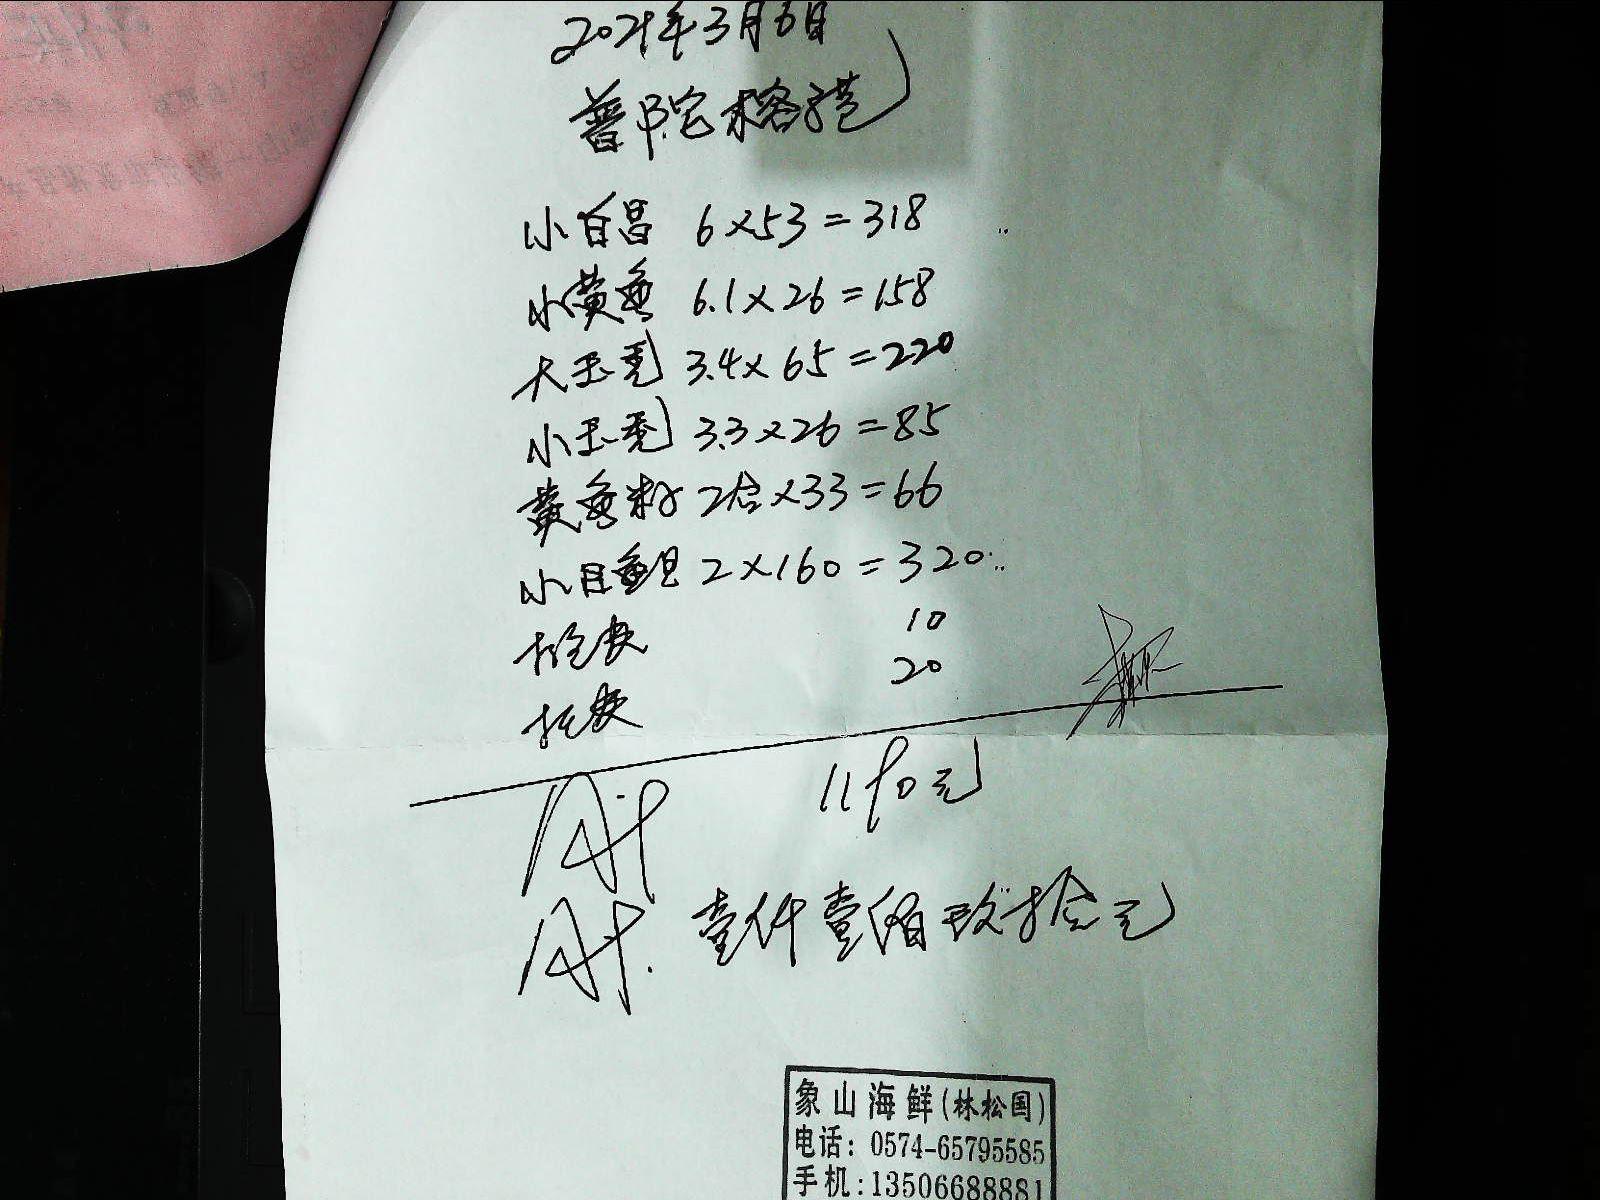 2021年3月6日
普陀榕港
小白昌 6×53=318
小黄鱼 6.1×26=158
大玉秃 3.4×65=220
小玉秃 3.3×26=85
黄鱼籽 2合×33=66
小目鱼旦 2×160=320
10
20
1190元
壹仟壹佰玖拾元
象山海鲜(林松国)
电话: 0574-65795585
手机:13506688881